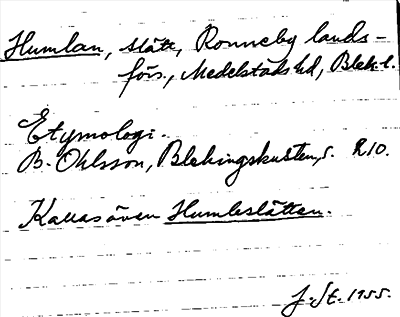 Humlan, slätt, Ronneby lands-
förs., Medelstads hd, Blek. l.
Etymologi.
B. Ohlsson, Blekingskusten, s. 210.
Kallas även Humleslätten.
J. St. 1955.